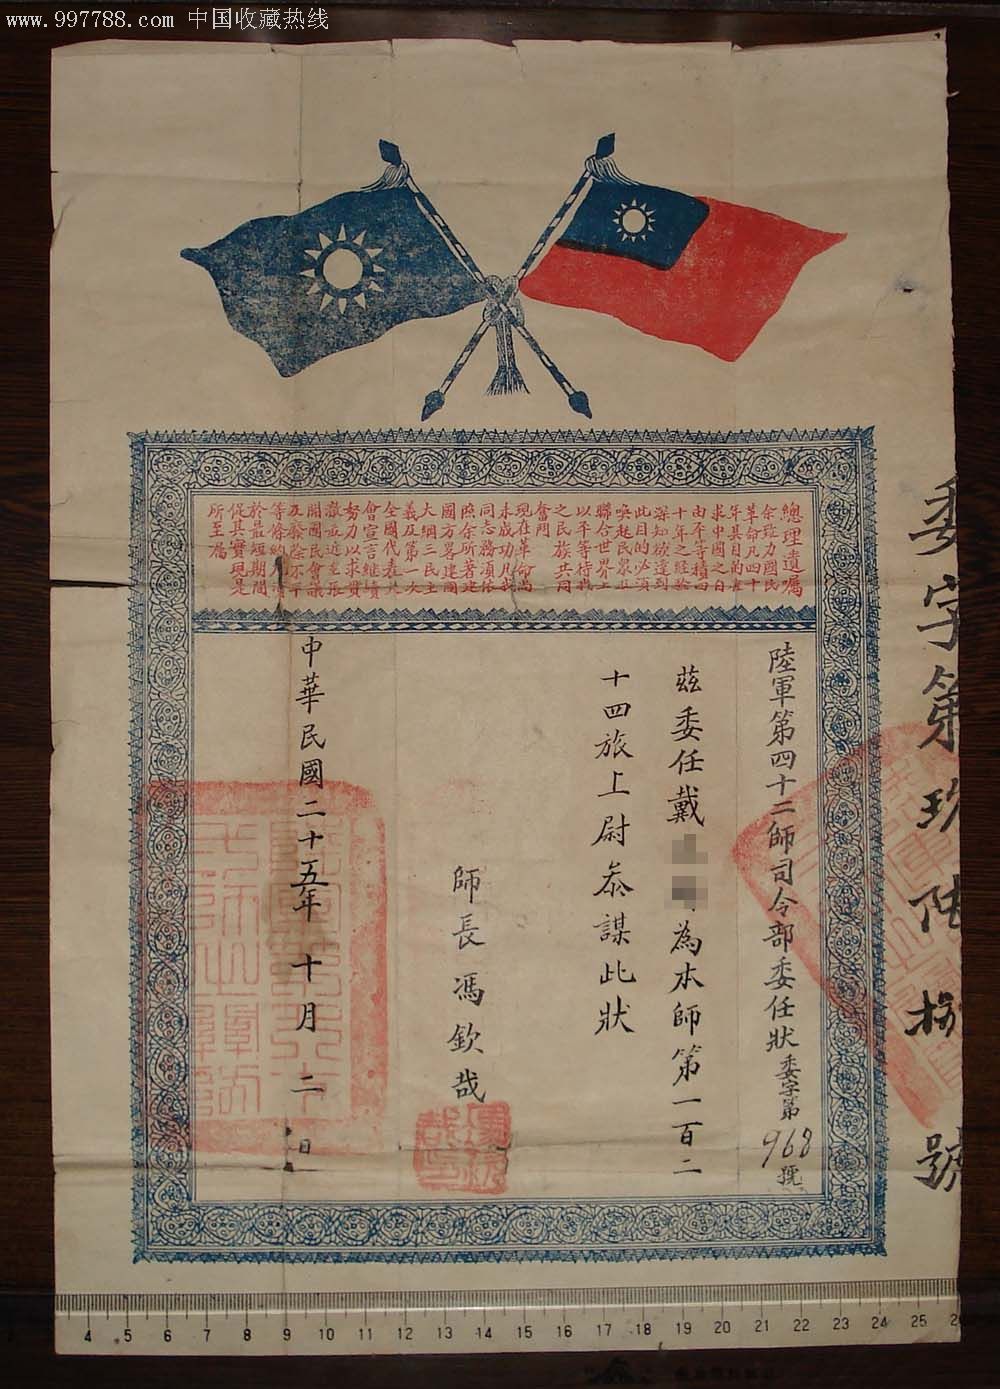 www.997788.com 中国收藏热线
總理遺囑
余致力國民
革命凡四十
年其目的在
求中國之自
由平等積四
十年之經驗
深知欲達到
此目的必須
喚起民眾並
聯合世界上
以平等待我
之民族共同
奮鬥
現在革命尚
未成功凡我
同志務須依
照余所著建
國方畧建國
大綱三民主
義及第一次
全國代表大
會宣言繼續
努力以求貫
徹最近主張
開國民會議
及廢除不平
等條約尤須
於最短期間
促其實現是
所至囑
陸軍第四十二師司令部委任狀 委字第968號
茲委任戴
為本師第一百二
十四旅上尉叅謀此狀
師長馮欽哉
中華民國二十五年十月二日
委字第玖陸捌號
4 5 6 7 8 9 10 11 12 13 14 15 16 17 18 19 20 21 22 23 24 25